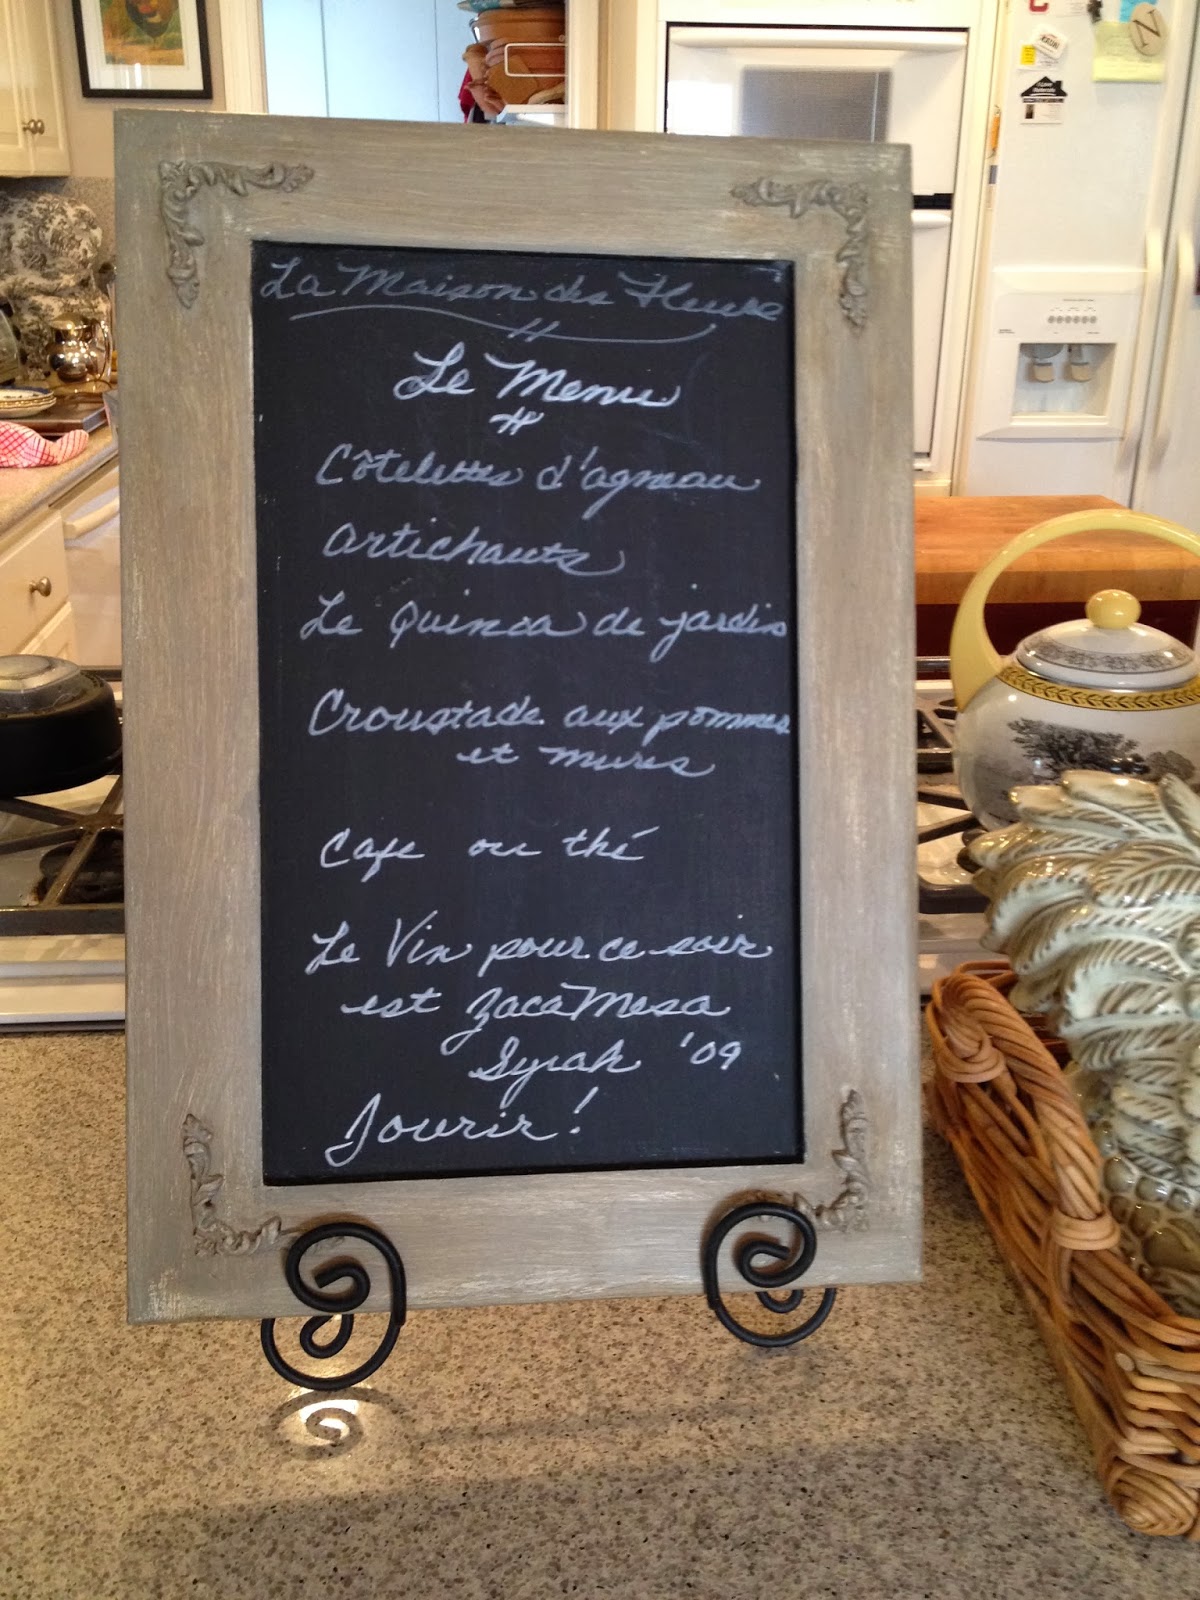 La Maison des Fleurs
Le Menu
Côtelettes d'agneau
Artichauts
Le Quinoa de jardin
Croustade aux pommes
et mures
Cafe ou thé
Le Vin pour ce soir
est Zaca Mesa
Syrah '09
Jourir!
N